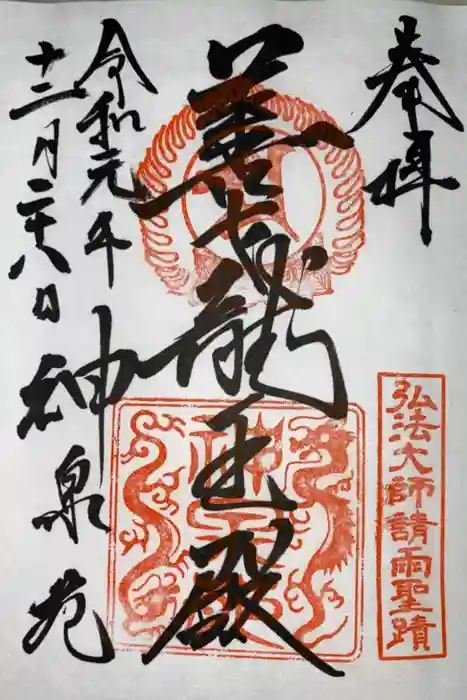 奉拝
弘法大師請雨聖蹟
善女龍王殿
令和元年
十二月二十八日
神泉苑